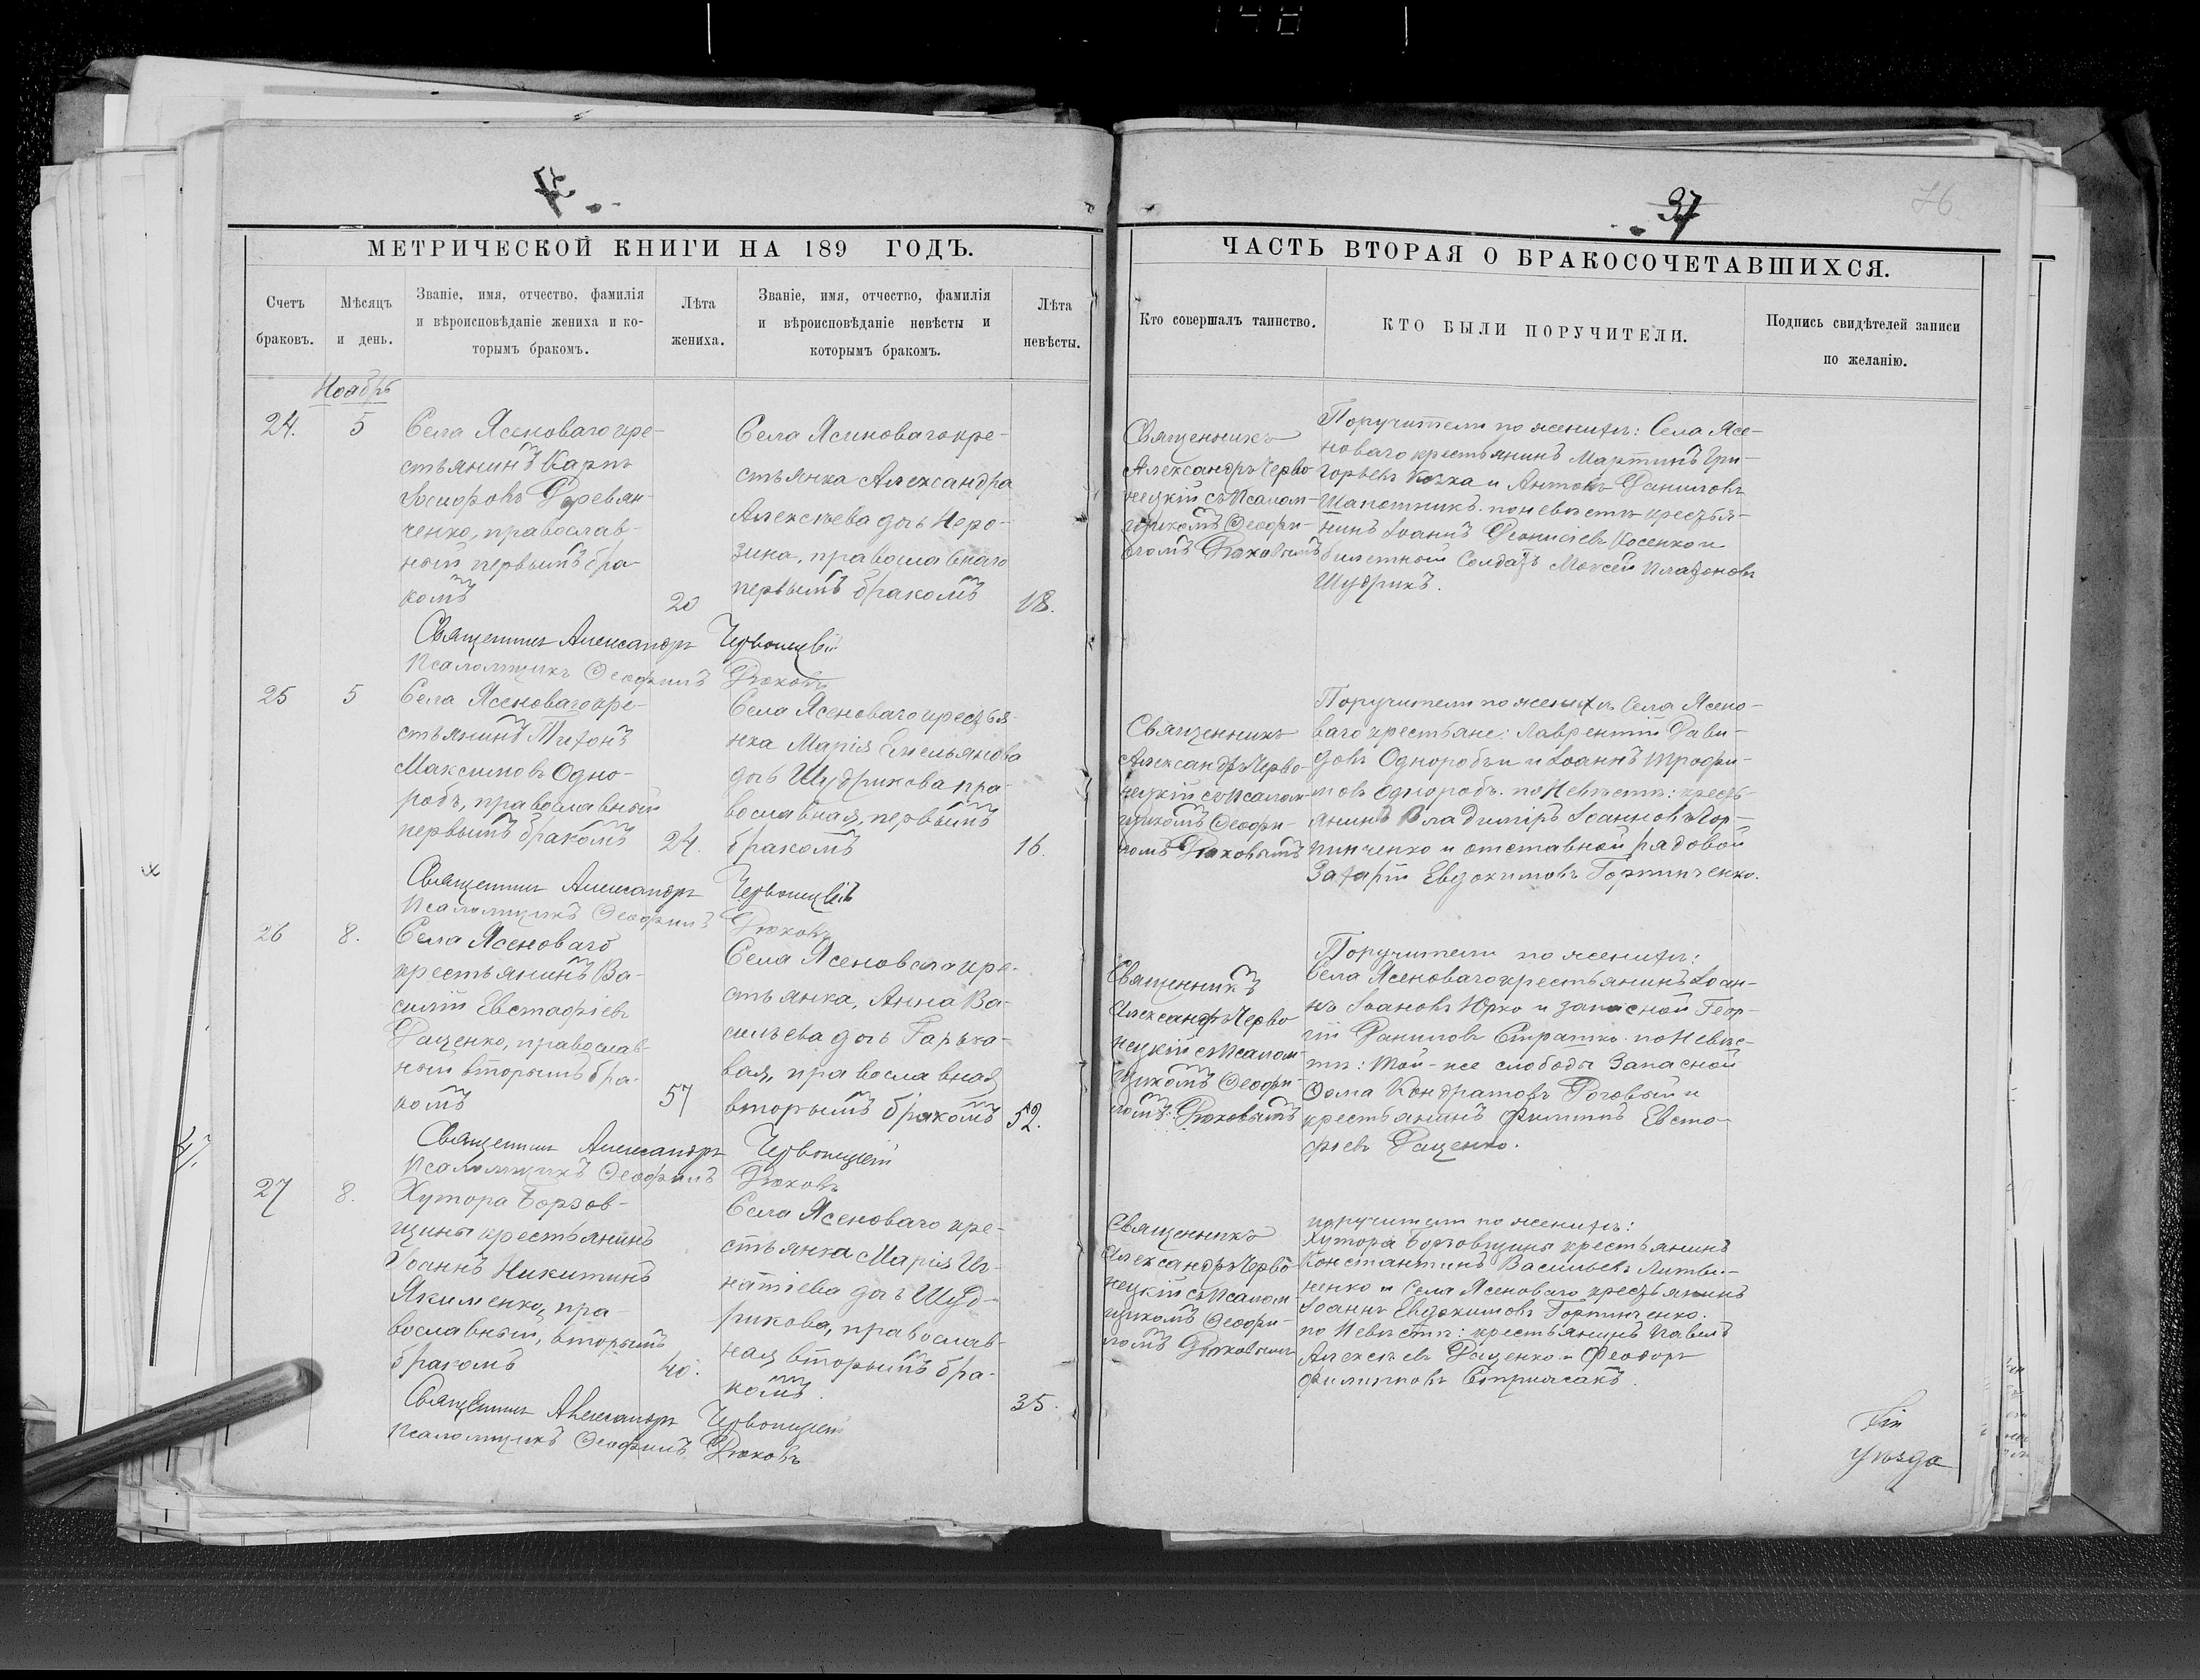 37
76
МЕТРИЧЕСКОЙ КНИГИ НА 189 ГОДЪ.
Счетъ браковъ.
Мѣсяцъ и день.
Званіе, имя, отчество, фамилія
и вѣроисповѣданіе жениха и ко-
торымъ бракомъ.
Лѣта жениха.
Званіе, имя, отчество, фамилія
и вѣроисповѣданіе невѣсты и
которымъ бракомъ.
Лѣта невѣсты.
ЧАСТЬ ВТОРАЯ О БРАКОСОЧЕТАВШИХСЯ.
Кто совершалъ таинство.
КТО БЫЛИ ПОРУЧИТЕЛИ.
Подпись свидѣтелей записи
по желанію.
Ноябрь
24.
5
Села Ясеноваго кре-
стьянинъ Карпъ
Іосифовъ Деревян-
ченко, православ-
ный первымъ бра-
комъ
20
Села Ясиноваго кре-
стьянка Александра
Алексѣева дочь Неро-
зина, православнаго
первымъ бракомъ
18.
Священникъ
Александръ Черво-
нецкій съ Псалом-
щикомъ Ѳеофи-
ломъ Дюковымъ
Поручители по женихѣ: Села Ясе-
новаго крестьянинъ Мартинъ Гри-
горьевъ Козка и Антонъ Даниловъ
Шапотникъ. по невѣстѣ крестья-
нинъ Іоаннъ Діонисіевъ Косенко и
билетный Солдатъ Моисей Платоновъ
Шудрикъ.
Священникъ Александръ Червонецкій
Псаломщикъ Ѳеофилъ Дюковъ
25
5
Села Ясеноваго кре-
стьянинъ Тихонъ
Максимовъ Одно-
робъ, православный
первымъ бракомъ
24.
Села Ясеноваго крестья-
нка Марія Емельянова
дочь Шудрикова пра-
вославная, первымъ
бракомъ
16.
Священникъ
Александръ Черво-
нецкій съ Псалом-
щикомъ Ѳеофи-
ломъ Дюковымъ
Поручители по женихѣ Села Ясено-
ваго крестьяне: Лаврентій Дави-
довъ Однороб и Іоаннъ Трофи-
мовъ Одноробъ. по Невѣстѣ: кресть-
янинъ Владиміръ Іоанновъ Гор-
пинченко и отставной рядовой
Захарій Евдокимовъ Горпинченко.
Священникъ Александръ Червонецкій
Псаломщикъ Ѳеофилъ Дюковъ
26
8.
Села Ясеноваго
крестьянинъ Ва-
силій Евстафіевъ
Даценко, православ-
ный вторымъ бра-
комъ
57
Села Ясеноваго кре-
стьянка, Анна Ва-
сильева дочь Гарька-
вая, православная
вторымъ бракомъ
52.
Священникъ
Александръ Черво
нецкій съ Псалом-
щикомъ Ѳеофи-
ломъ Дюковымъ
Поручители по женихѣ:
Села Ясеноваго крестьянинъ Іоан-
нъ Іоановъ Юрко и запасной Геор-
гій Даниловъ Стратко. по Невѣс-
тѣ: той-же слободы Запасной
Ѳома Кондратовъ Роговый и
крестьянинъ Филиппъ Евста-
фіевъ Даценко.
Священникъ Александръ Червонецкій
Псаломщикъ Ѳеофилъ Дюковъ
27
8.
Хутора Борзов-
щины крестьянинъ
Іоаннъ Никитинъ
Якименко, пра-
вославный, вторымъ
бракомъ
40.
Села Ясеноваго кре-
стьянка Марія Иг-
натіева дочь Шуд-
рикова, православ-
ная вторымъ бра-
комъ.
35.
Священникъ
Александръ Черво-
нецкій съ Псалом-
щикомъ Ѳеофи-
ломъ Дюковымъ
поручители по женихѣ:
Хутора Борзовщины крестьянинъ
Константинъ Васильевъ Литви-
ненко и Села Ясеноваго крестьянинъ
Іоаннъ Евдокимовъ Горпинченко.
по Невѣстѣ: крестьянинъ Павелъ
Алексѣевъ Даценко и Феодоръ
Филипповъ Стрижакъ.
Священникъ Александръ Червонецкій
Псаломщикъ Ѳеофилъ Дюковъ
уѣзда